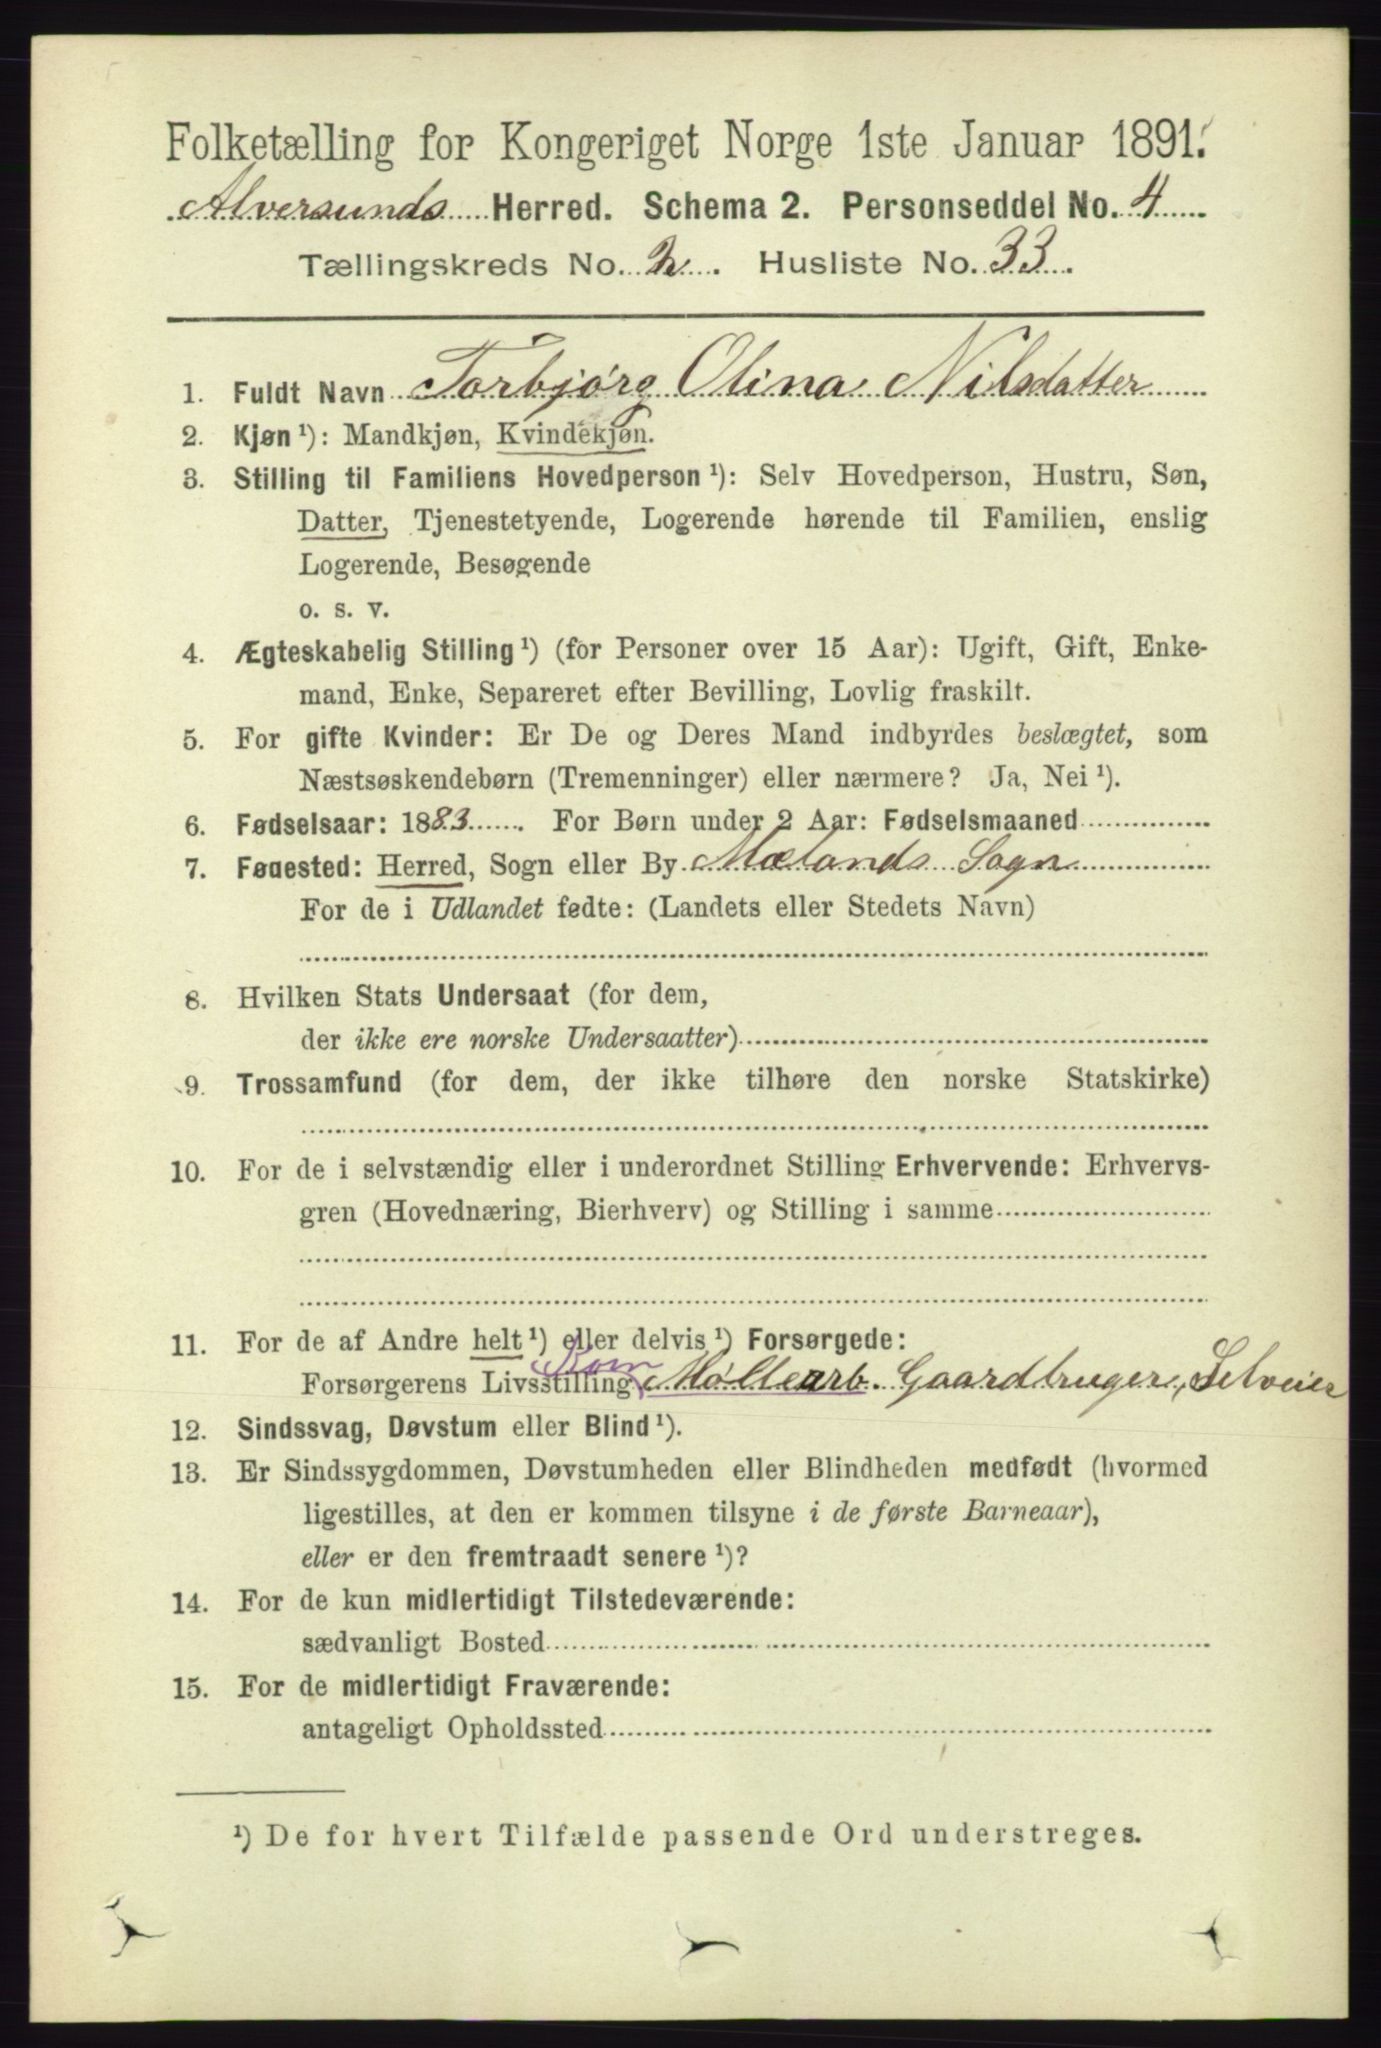 Folketælling for Kongeriget Norge 1ste Januar 1891.
Alversunds Herred. Schema 2. Personseddel No. 4
Tællingskreds No. 2. Husliste No. 33.
1. Fuldt Navn Torbjørg Olina Nilsdatter
2. Kjøn ¹): Mandkjøn, Kvindekjøn.
3. Stilling til Familiens Hovedperson ¹): Selv Hovedperson, Hustru, Søn,
Datter, Tjenestetyende, Logerende hørende til Familien, enslig
Logerende, Besøgende
o. s. v.
4. Ægteskabelig Stilling ¹) (for Personer over 15 Aar): Ugift, Gift, Enke-
mand, Enke, Separeret efter Bevilling, Lovlig fraskilt.
5. For gifte Kvinder: Er De og Deres Mand indbyrdes beslægtet, som
Næstsøskendebørn (Tremenninger) eller nærmere? Ja, Nei ¹).
6. Fødselsaar: 1883. For Børn under 2 Aar: Fødselsmaaned
7. Fødested: Herred, Sogn eller By Mælands Sogn
For de i Udlandet fødte: (Landets eller Stedets Navn)
8. Hvilken Stats Undersaat (for dem,
der ikke ere norske Undersaatter)
9. Trossamfund (for dem, der ikke tilhøre den norske Statskirke)
10. For de i selvstændig eller i underordnet Stilling Erhvervende: Erhvervs-
gren (Hovednæring, Bierhverv) og Stilling i samme
11. For de af Andre helt ¹) eller delvis ¹) Forsørgede:
Korn
Forsørgerens Livsstilling Møllearb. Gaardbruger, Selveier
12. Sindssvag, Døvstum eller Blind ¹).
13. Er Sindssygdommen, Døvstumheden eller Blindheden medfødt (hvormed
ligestilles, at den er kommen tilsyne i de første Barneaar),
eller er den fremtraadt senere ¹)?
14. For de kun midlertidigt Tilstedeværende:
sædvanligt Bosted
15. For de midlertidigt Fraværende:
antageligt Opholdssted
¹) De for hvert Tilfælde passende Ord understreges.